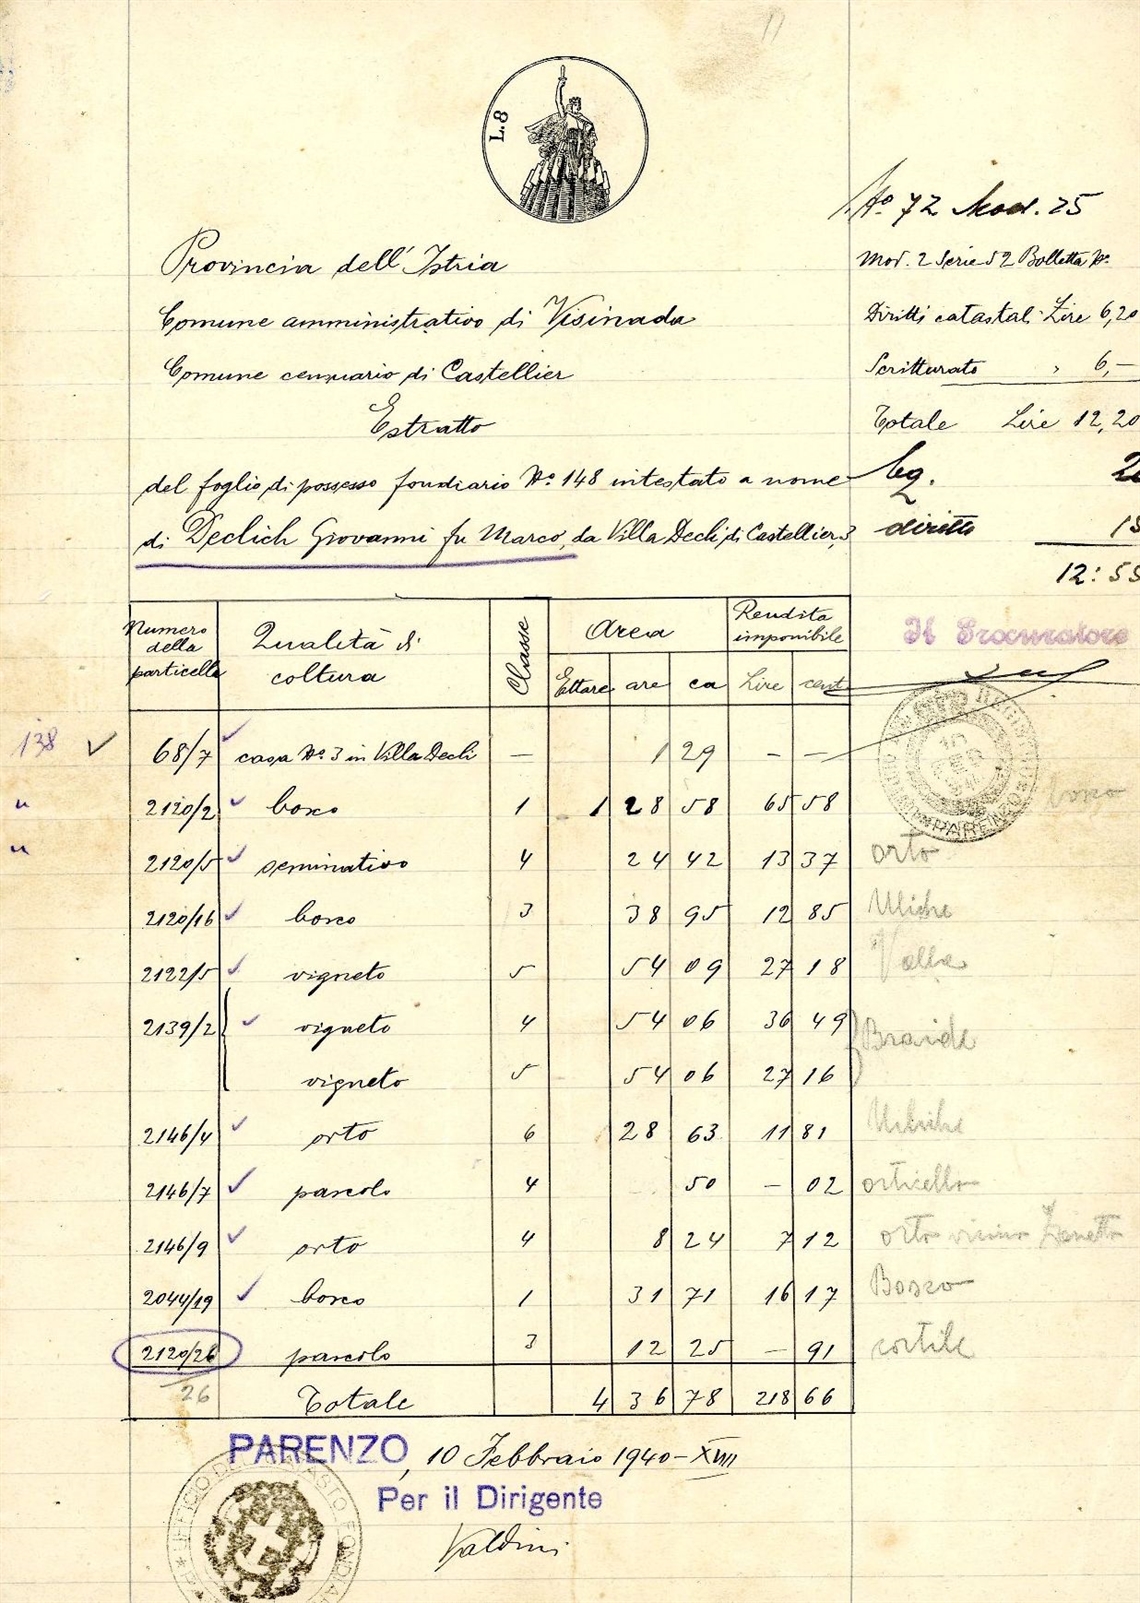 L.8
No 72 Mod. 25
Provincia dell'Istria
Mod. 2 Serie 52 Bolletta No.
Comune amministrativo di Visinada
Diritti catastali Lire 6,20
Comune censuario di Castellier
Scritturato " 6,—
Estratto
Totale Lire 12,20
del foglio di possesso fondiario No. 148 intestato a nome
di Declich Giovanni fu Marco, da Villa Decli di Castellier, 3
diritto
12:55
Il Procuratore
Numero della particella Qualità di coltura Classe Area Rendita imponibile
Ettare are ca Lire cent.
138 ✓ 68/7 ✓ casa No. 3 in Villa Decli — 1 29 — —
" 2120/2 ✓ bosco 1 1 28 58 65 58 bosco
" 2120/5 ✓ seminativo 4 24 42 13 37 orto
2120/16 ✓ bosco 3 38 95 12 85
2122/5 ✓ vigneto 5 54 09 27 18
2139/2 ✓ vigneto 4 54 06 36 49 Braide
vigneto 5 54 06 27 16
2146/4 ✓ orto 6 28 63 11 81
2146/7 ✓ pascolo 4 50 — 02 orticello
2146/9 ✓ orto 4 8 24 7 12 orto vicino
2044/19 ✓ bosco 1 31 71 16 17 Bosco
2120/26 pascolo 3 12 25 — 91 cortile
26 Totale 4 36 78 218 66
PARENZO, 10 Febbraio 1940–XVIII
Per il Dirigente
Valdini